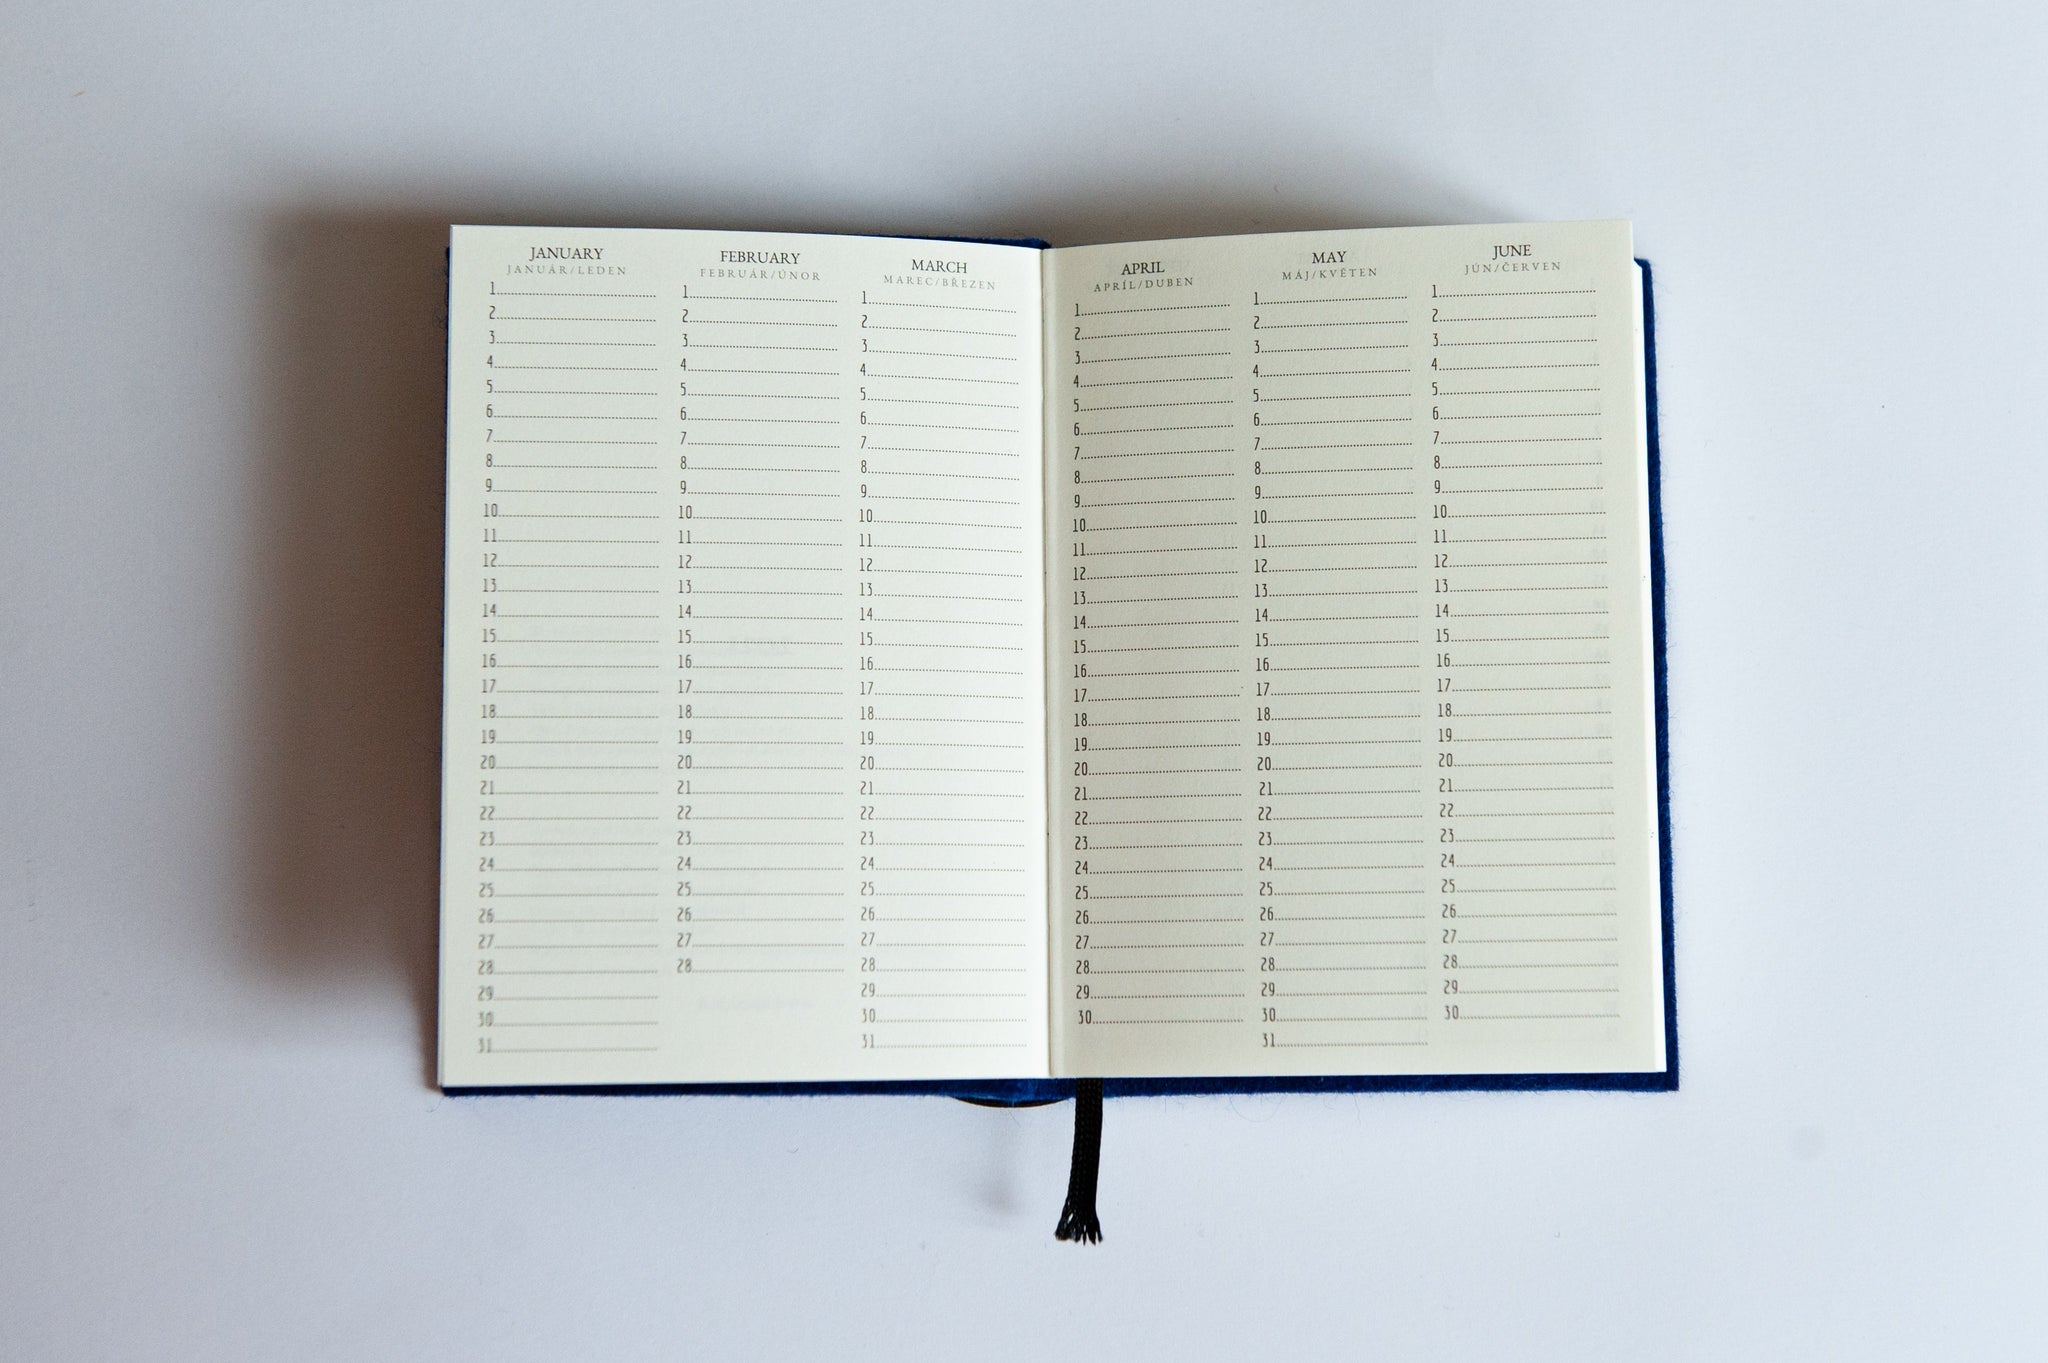 JANUARY
JANUÁR/LEDEN
1
2
3
4
5
6
7
8
9
10
11
12
13
14
15
16
17
18
19
20
21
22
23
24
25
26
27
28
29
30
31
FEBRUARY
FEBRUÁR/ÚNOR
1
2
3
4
5
6
7
8
9
10
11
12
13
14
15
16
17
18
19
20
21
22
23
24
25
26
27
28
MARCH
MAREC/BŘEZEN
1
2
3
4
5
6
7
8
9
10
11
12
13
14
15
16
17
18
19
20
21
22
23
24
25
26
27
28
29
30
31
APRIL
APRÍL/DUBEN
1
2
3
4
5
6
7
8
9
10
11
12
13
14
15
16
17
18
19
20
21
22
23
24
25
26
27
28
29
30
MAY
MÁJ/KVĚTEN
1
2
3
4
5
6
7
8
9
10
11
12
13
14
15
16
17
18
19
20
21
22
23
24
25
26
27
28
29
30
31
JUNE
JÚN/ČERVEN
1
2
3
4
5
6
7
8
9
10
11
12
13
14
15
16
17
18
19
20
21
22
23
24
25
26
27
28
29
30